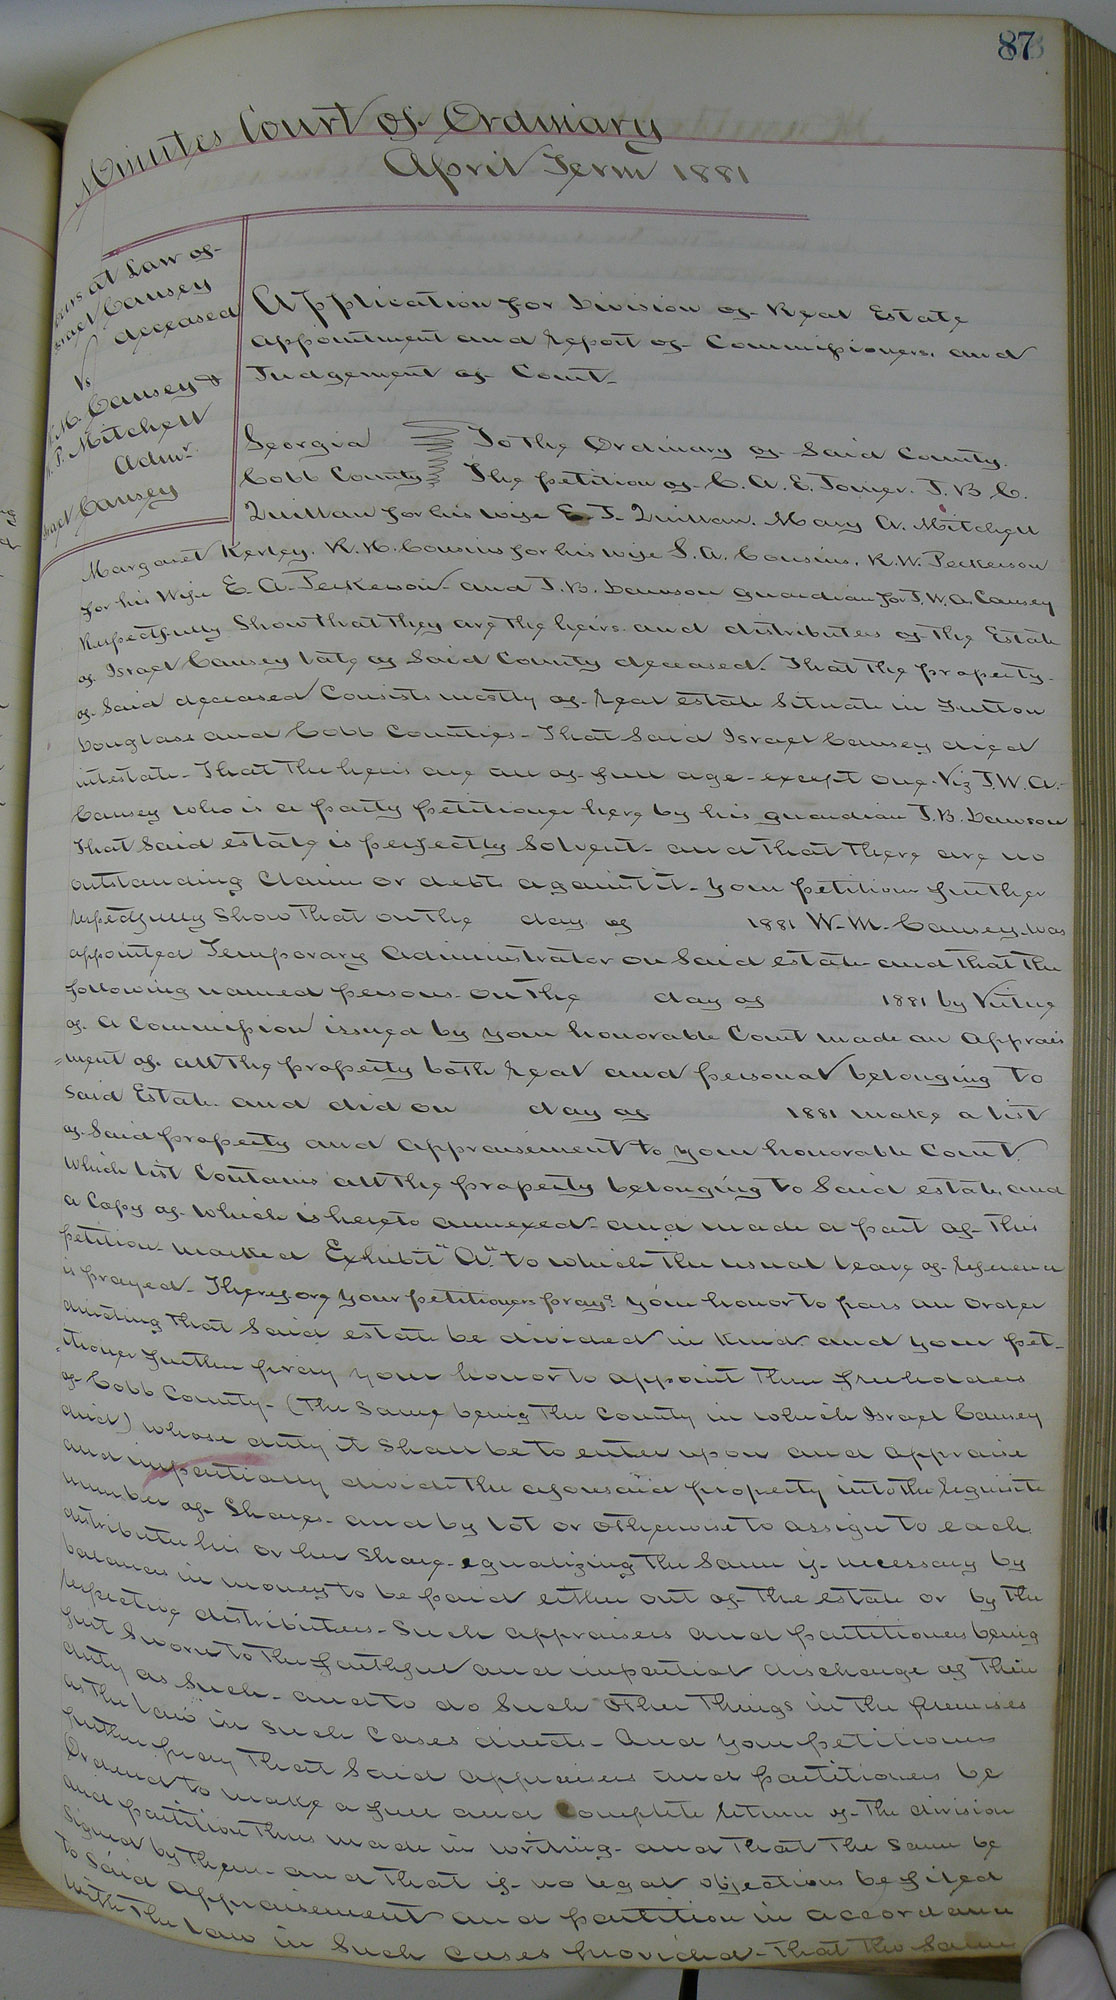 87
Minutes Court of Ordinary
April Term 1881
at Law of
Causey
deceased
Vs
M. Causey &
P. Mitchell
Admr
Causey
Application for Division of Real Estate
appointment and report of Commissioners, and
Judgement of Court
Georgia To the Ordinary of Said County.
Cobb County The petition of C. A. E. Tomer. J. B. C.
Quillian for his wife E. J. Quillian. Mary A. Mitchell
Margaret Kerley. R. H. Cousins for his wife S. A. Cousins, R. W. Peckerson
for his Wife E. A. Peckerson and J. B. Dawson guardian for J. W. A. Causey
Respectfully Show that they are the heirs and distributees of the Estate
of Israel Causey late of Said County deceased. That the property
of Said deceased Consists mostly of real estate Situate in Fulton
Douglass and Cobb Counties - That Said Israel Causey died
intestate - That the heirs are all of full age - except one - Viz J. W. A.
Causey who is a party petitioner here by his guardian J. B. Dawson
That Said estate is perfectly Solvent - and that there are no
outstanding Claims or debts against it - Your petitioners further
respectfully Show that on the day of 1881 W. M. Causey was
appointed Temporary administrator on Said estate and that the
following named persons - on the day of 1881 by Virtue
of a Commission issued by your honorable Court made an Apprais
=ment of all the property both real and personal belonging to
Said Estate and did on day of 1881 make a list
of Said property and appraisement to your honorable Court
Which list Contains all the property belonging to Said estate and
a Copy of which is hereto annexed - and made a part of this
petition - marked Exhibit "A" to which the usual leave of reference
is prayed - Therefore your petitioners prays your honor to pass an order
directing that Said estate be divided in Kind and your pet-
=itioner further pray your honor to appoint three freeholders
of Cobb County - (The Same being the County in which Israel Causey
died) whose duty it Shall be to enter upon and appraise
and impartially divide the aforesaid property into the requisite
number of Shares - and by lot or otherwise to assign to each
distributee his or her Share - equalizing the Same if necessary by
balances in money to be paid either out of the estate or by the
respective distributees - Such appraisers and partitioners being
first Sworn to the faithful and impartial discharge of their
duty as Such - and to do Such other things in the premises
as the law in Such Cases directs - And your petitioners
further pray that Said appraisers and partitioners be
Ordered to make a full and Complete return of the division
and partition thus made in writing - and that the Same be
Signed by them - and that if no legal objections be filed
to Said appraisement and partition in accordance
with the law in Such Cases provided - that the Same